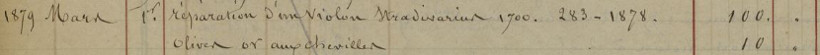 1879 Mars 1er réparation d'un Violon Stradivarius 1700. 283 - 1878. 100. .
Olives or aux chevilles 10 .